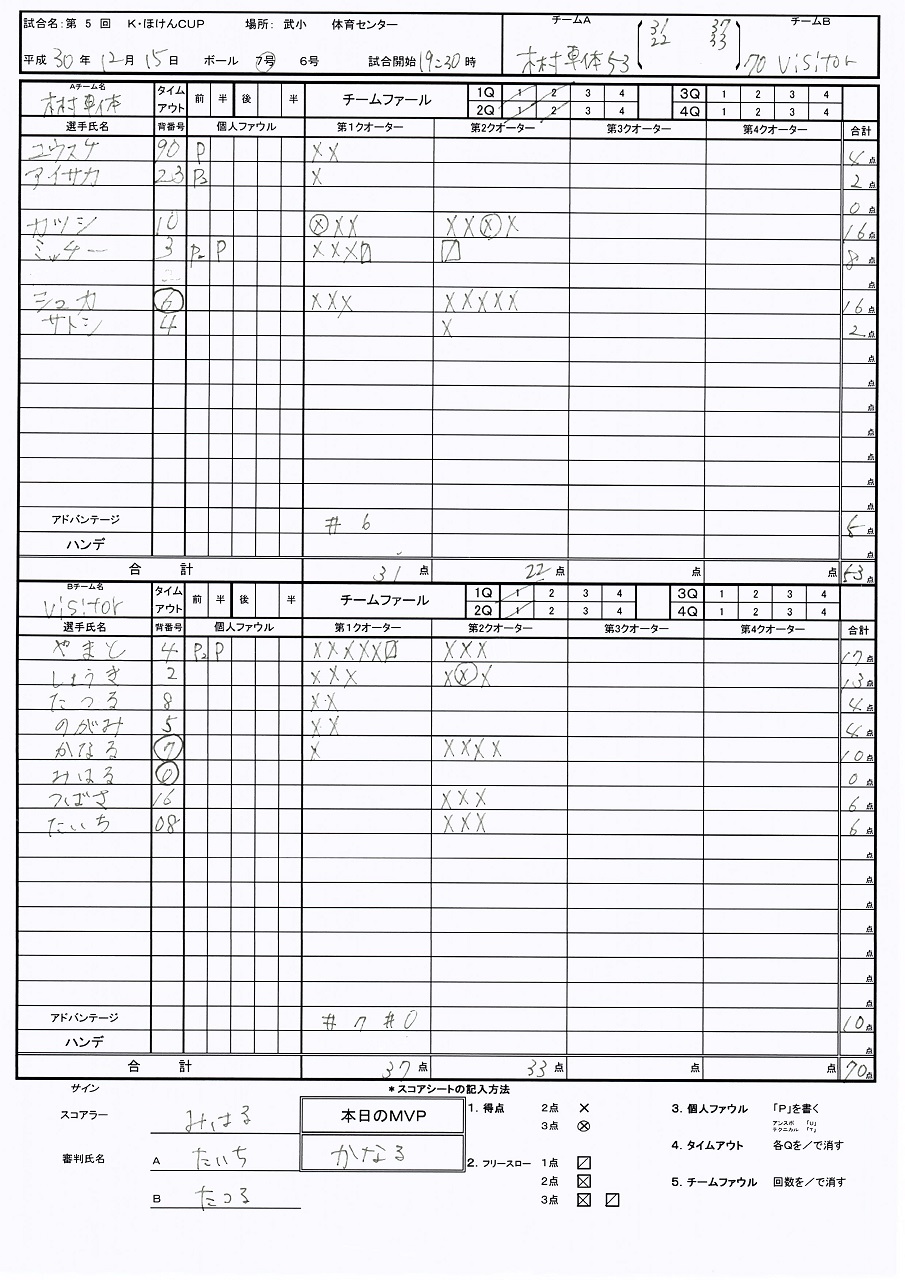 試合名:第 5 回 K・ほけんCUP 場所: 武小 体育センター
チームA チームB
平成 30 年 12 月 15 日 ボール 7号 6号 試合開始 19:30 時
木村車体 53 31 37 22 33 70 visitor
Aチーム名 木村車体 タイムアウト 前 半 後 半 チームファール 1Q 1 2 3 4 3Q 1 2 3 4
2Q 1 2 3 4 4Q 1 2 3 4
選手氏名 背番号 個人ファウル 第1クオーター 第2クオーター 第3クオーター 第4クオーター 合計
ユウスケ 90 P X X 4点
アイサカ 23 P3 X 2点
0点
カツシ 10 ⓧ X X X X ⓧ X 16点
ミッチー 3 P2 P X X X 〼 〼 8点
点
シュカ 6 X X X X X X X X 16点
サトシ 4 X 2点
点
点
点
点
点
点
点
アドバンテージ # 6 5点
ハンデ 点
合 計 31 点 22 点 点 点 53点
Bチーム名 visitor タイムアウト 前 半 後 半 チームファール 1Q 1 2 3 4 3Q 1 2 3 4
2Q 1 2 3 4 4Q 1 2 3 4
選手氏名 背番号 個人ファウル 第1クオーター 第2クオーター 第3クオーター 第4クオーター 合計
やまと 4 P2 P X X X X X 〼 X X X 17点
しょうき 2 X X X X ⓧ X 13点
たつる 8 X X 4点
のがみ 5 X X 4点
かなる 7 X X X X X 10点
みはる 0 0点
つばさ 16 X X X 6点
たいち 08 X X X 6点
点
点
点
点
点
点
点
アドバンテージ # 7 #0 10点
ハンデ 点
合 計 37 点 33 点 点 点 70点
サイン
スコアラー みはる
審判氏名 A たいち
B たつる
本日のMVP
かなる
*スコアシートの記入方法
1. 得点 2点 ×
3点 ⊗
2. フリースロー 1点 〼
2点 ☒
3点 ☒ 〼
3. 個人ファウル 「P」を書く
アンスポ 「U」
テクニカル 「T」
4. タイムアウト 各Qを/で消す
5. チームファウル 回数を/で消す